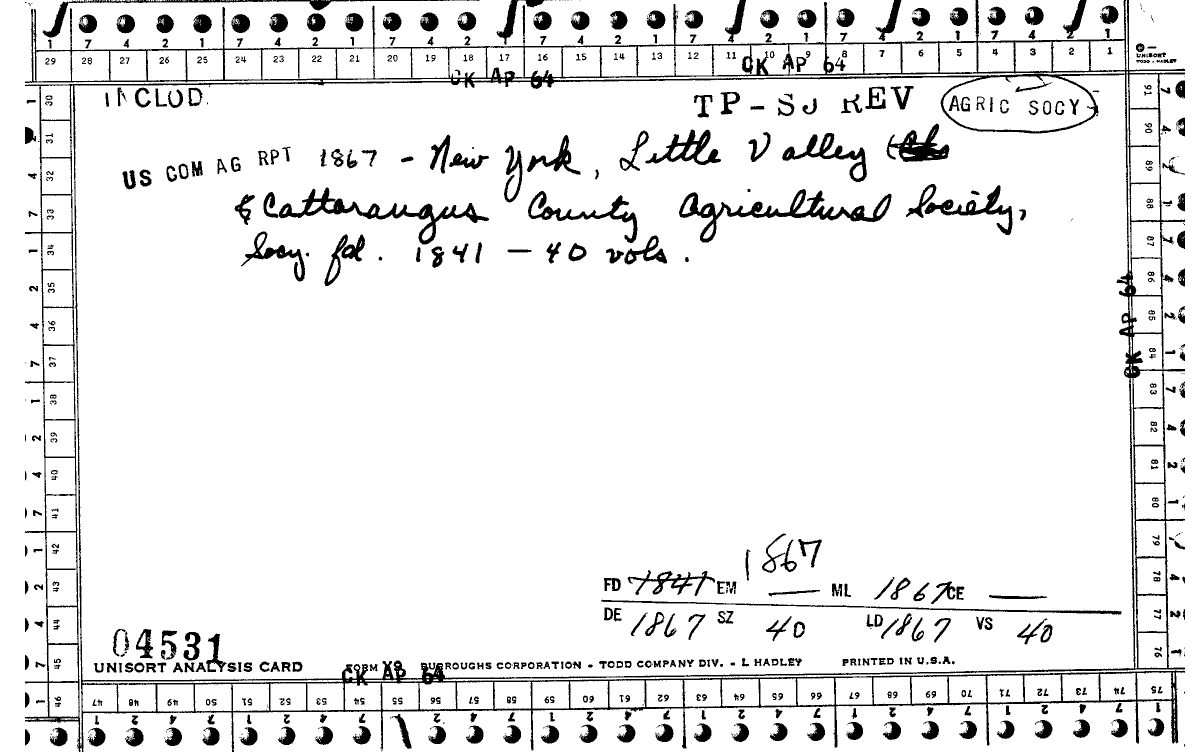 7 4 2 1 7 4 2 1 7 4 2 1 7 4 2 1 7 4 2 1 7 4 2 1 7 4 2 1
29 28 27 26 25 24 23 22 21 20 19 18 17 16 15 14 13 12 11 10 9 8 7 6 5 4 3 2 1
UNISORT
TODD - HADLEY
CK AP 64 CK AP 64
INCLOD. TP-SJ REV AGRIC SOCY-
US COM AG RPT 1867 - New York, Little Valley
& Cattaraugus County Agricultural Society,
Socy. fd. 1841 - 40 vols.
CK AP 64
1867
FD 1841 EM — ML 1867 CE —
DE 1867 SZ 40 LD 1867 VS 40
04531
UNISORT ANALYSIS CARD FORM Y9 BURROUGHS CORPORATION - TODD COMPANY DIV. - L HADLEY PRINTED IN U.S.A.
CK AP 64
30 31 32 33 34 35 36 37 38 39 40 41 42 43 44 45 46
91 90 89 88 87 86 85 84 83 82 81 80 79 78 77 76
47 48 49 50 51 52 53 54 55 56 57 58 59 60 61 62 63 64 65 66 67 68 69 70 71 72 73 74 75